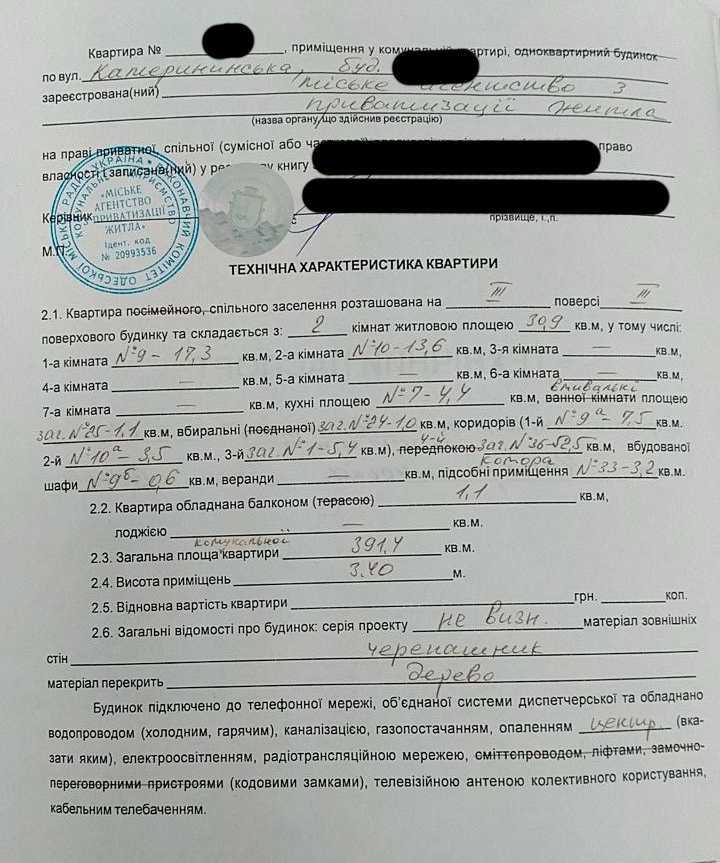 Квартира № , приміщення у комунальній квартирі, одноквартирний будинок
по вул. Катерининська, буд.
зареєстрована(ний) міське агентство з
приватизації житла
(назва органу, що здійснив реєстрацію)
на праві приватної, спільної (сумісної або право
власності (записана(ний) у реєстрову книгу
Керівник прізвище, і.,п.
М.П.
МІСЬКЕ АГЕНТСТВО З ПРИВАТИЗАЦІЇ ЖИТЛА
Ідент. код № 20993536
УКРАЇНА ВИКОНАВЧИЙ КОМІТЕТ ОДЕСЬКОЇ МІСЬКОЇ РАДИ
КОМУНАЛЬНЕ ПІДПРИЄМСТВО
ТЕХНІЧНА ХАРАКТЕРИСТИКА КВАРТИРИ
2.1. Квартира посімейного, спільного заселення розташована на III поверсі III
поверхового будинку та складається з: 2 кімнат житловою площею 30,9 кв.м, у тому числі:
1-а кімната №9 – 17,3 кв.м, 2-а кімната №10 – 13,6 кв.м, 3-я кімната — кв.м,
4-а кімната — кв.м, 5-а кімната — кв.м, 6-а кімната — кв.м,
вмивальні
7-а кімната — кв.м, кухні площею №7 – 4,4 кв.м, ванної кімнати площею
заг. №25 – 1,1 кв.м, вбиральні (поєднаної) заг. №24 – 1,0 кв.м, коридорів (1-й №9а – 7,5 кв.м.
4-й
2-й №10а – 3,5 кв.м., 3-й заг. №1 – 5,4 кв.м), передпокою заг. №36 – 52,5 кв.м, вбудованої
комора
шафи №9б – 0,6 кв.м, веранди — кв.м, підсобні приміщення №33 – 3,2 кв.м.
2.2. Квартира обладнана балконом (терасою) 1,1 кв.м,
лоджією — кв.м.
комунальної
2.3. Загальна площа квартири 391,4 кв.м.
2.4. Висота приміщень 3.40 м.
2.5. Відновна вартість квартири грн. коп.
2.6. Загальні відомості про будинок: серія проекту не визн. матеріал зовнішніх
стін черепашник
матеріал перекрить дерево
Будинок підключено до телефонної мережі, об'єднаної системи диспетчерської та обладнано
водопроводом (холодним, гарячим), каналізацією, газопостачанням, опаленням центр. (вка-
зати яким), електроосвітленням, радіотрансляційною мережею, сміттєпроводом, ліфтами, замочно-
переговорними пристроями (кодовими замками), телевізійною антеною колективного користування,
кабельним телебаченням.